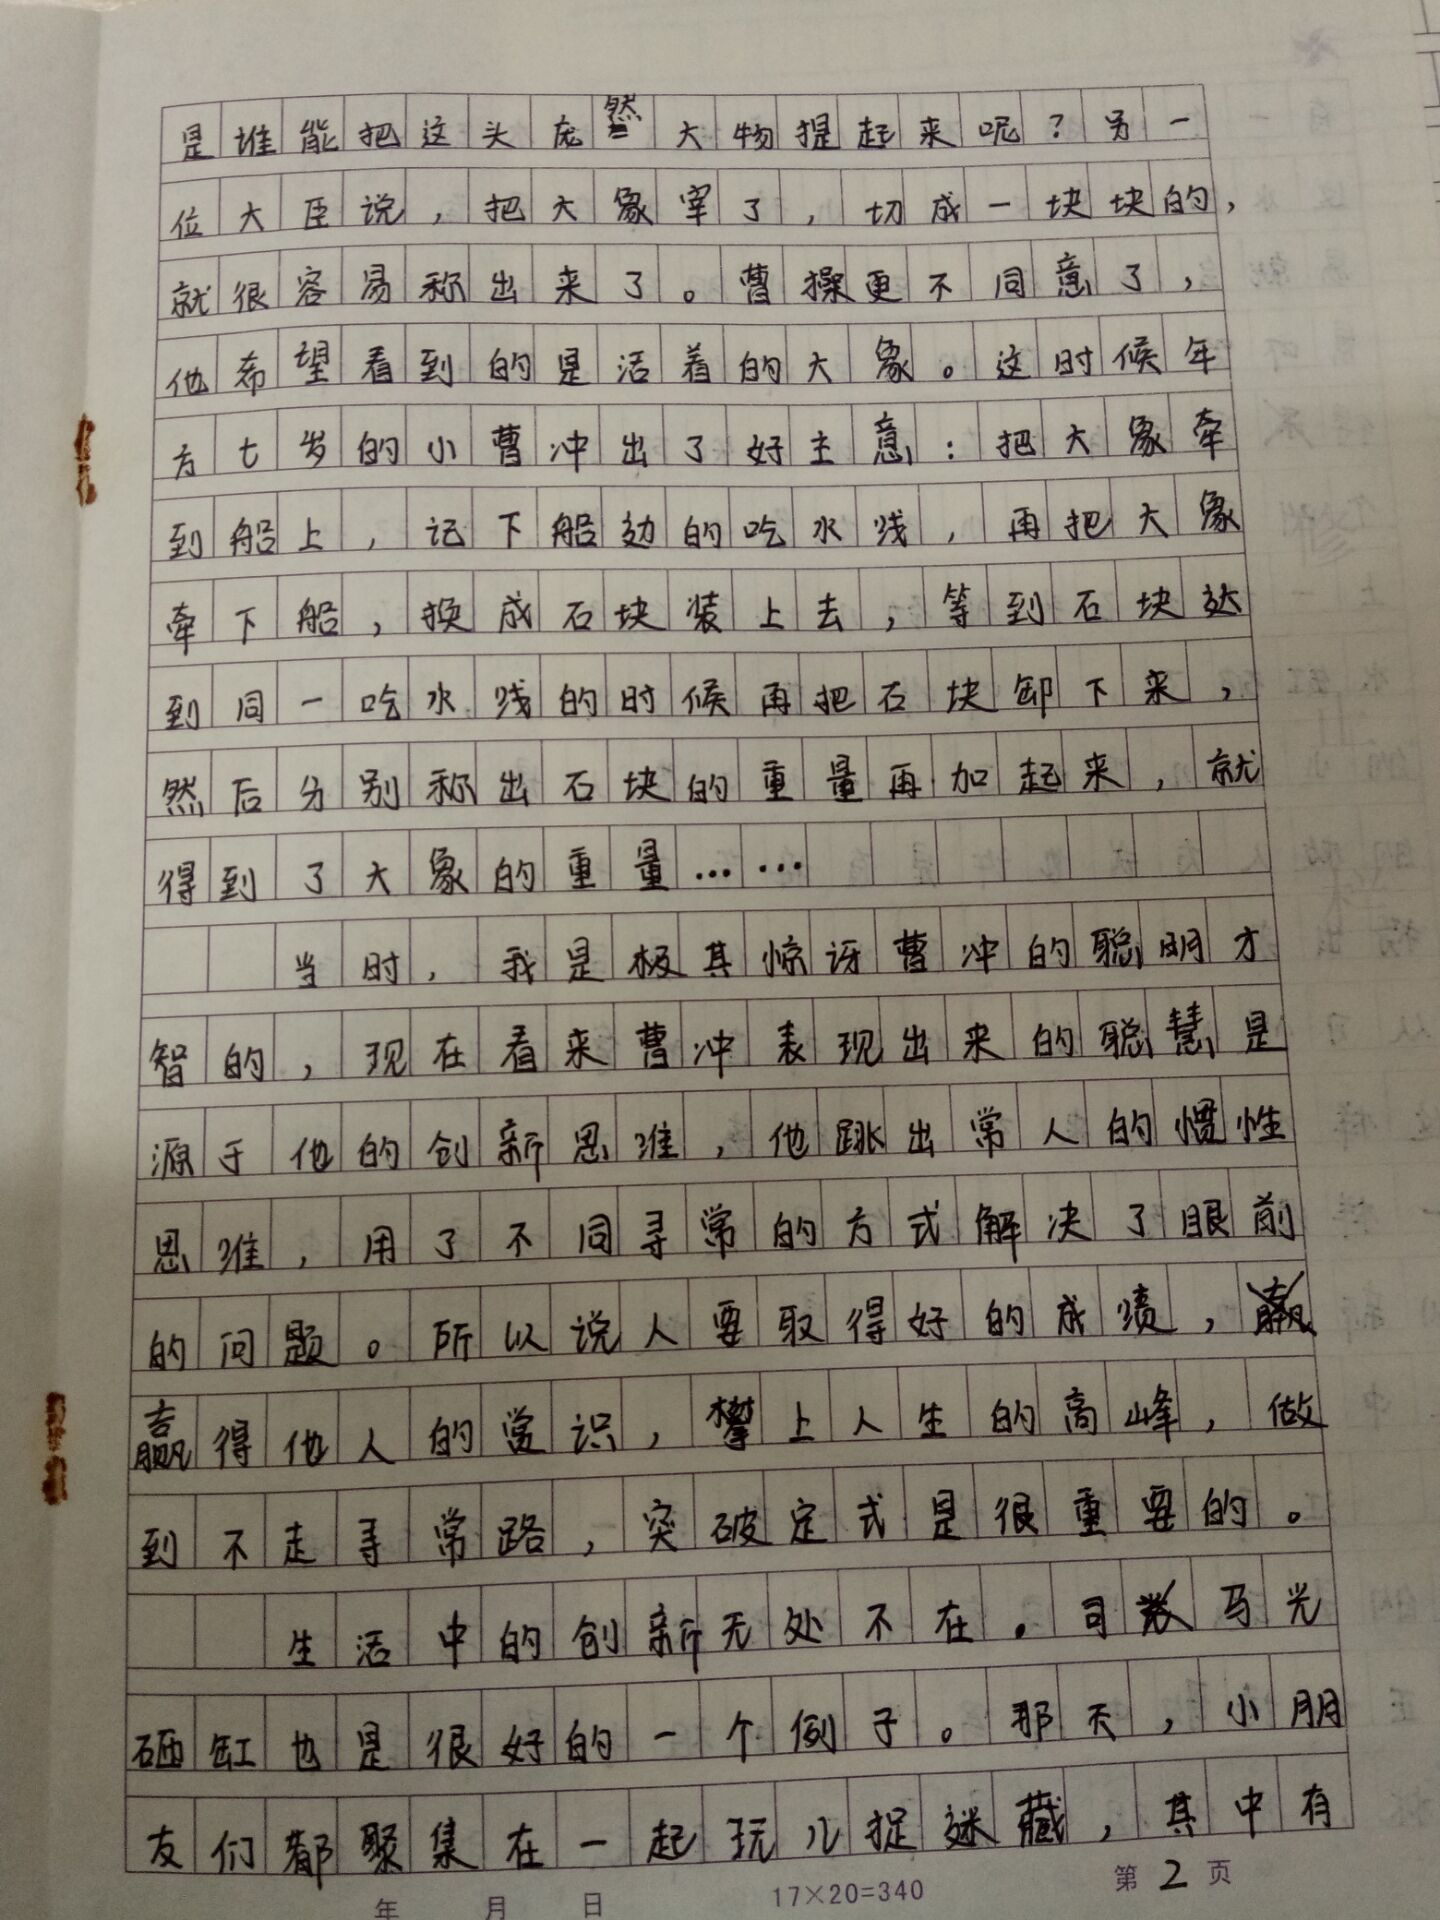 是谁能把这头庞然大物提起来呢？另一
位大臣说，把大象宰了，切成一块块的，
就很容易称出来了。曹操更不同意了，
他希望看到的是活着的大象。这时候年
方七岁的小曹冲出了好主意：把大象牵
到船上，记下船边的吃水线，再把大象
牵下船，换成石块装上去，等到石块达
到同一吃水线的时候再把石块卸下来，
然后分别称出石块的重量再加起来，就
得到了大象的重量……
当时，我是极其惊讶曹冲的聪明才
智的，现在看来曹冲表现出来的聪慧是
源于他的创新思维，他跳出常人的惯性
思维，用了不同寻常的方式解决了眼前
的问题。所以说人要取得好的成绩，
赢得他人的赏识，攀上人生的高峰，做
到不走寻常路，突破定式是很重要的。
生活中的创新无处不在。司马光
砸缸也是很好的一个例子。那天，小朋
友们都聚集在一起玩儿捉迷藏，其中有
年 月 日 17×20=340 第 2 页